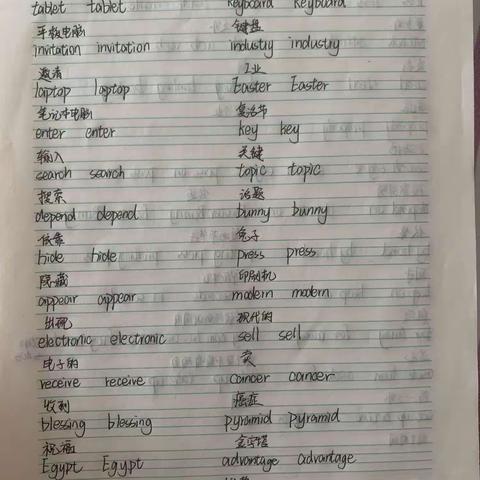 tablet tablet keyboard keyboard
平板电脑 键盘
invitation invitation industry industry
邀请 工业
laptop laptop Easter Easter
笔记本电脑 复活节
enter enter key key
输入 关键
search search topic topic
搜索 话题
depend depend bunny bunny
依靠 兔子
hide hide press press
隐藏 印刷机
appear appear modern modern
出现 现代的
electronic electronic sell sell
电子的 卖
receive receive cancer cancer
收到 癌症
blessing blessing pyramid pyramid
祝福 金字塔
Egypt Egypt advantage advantage